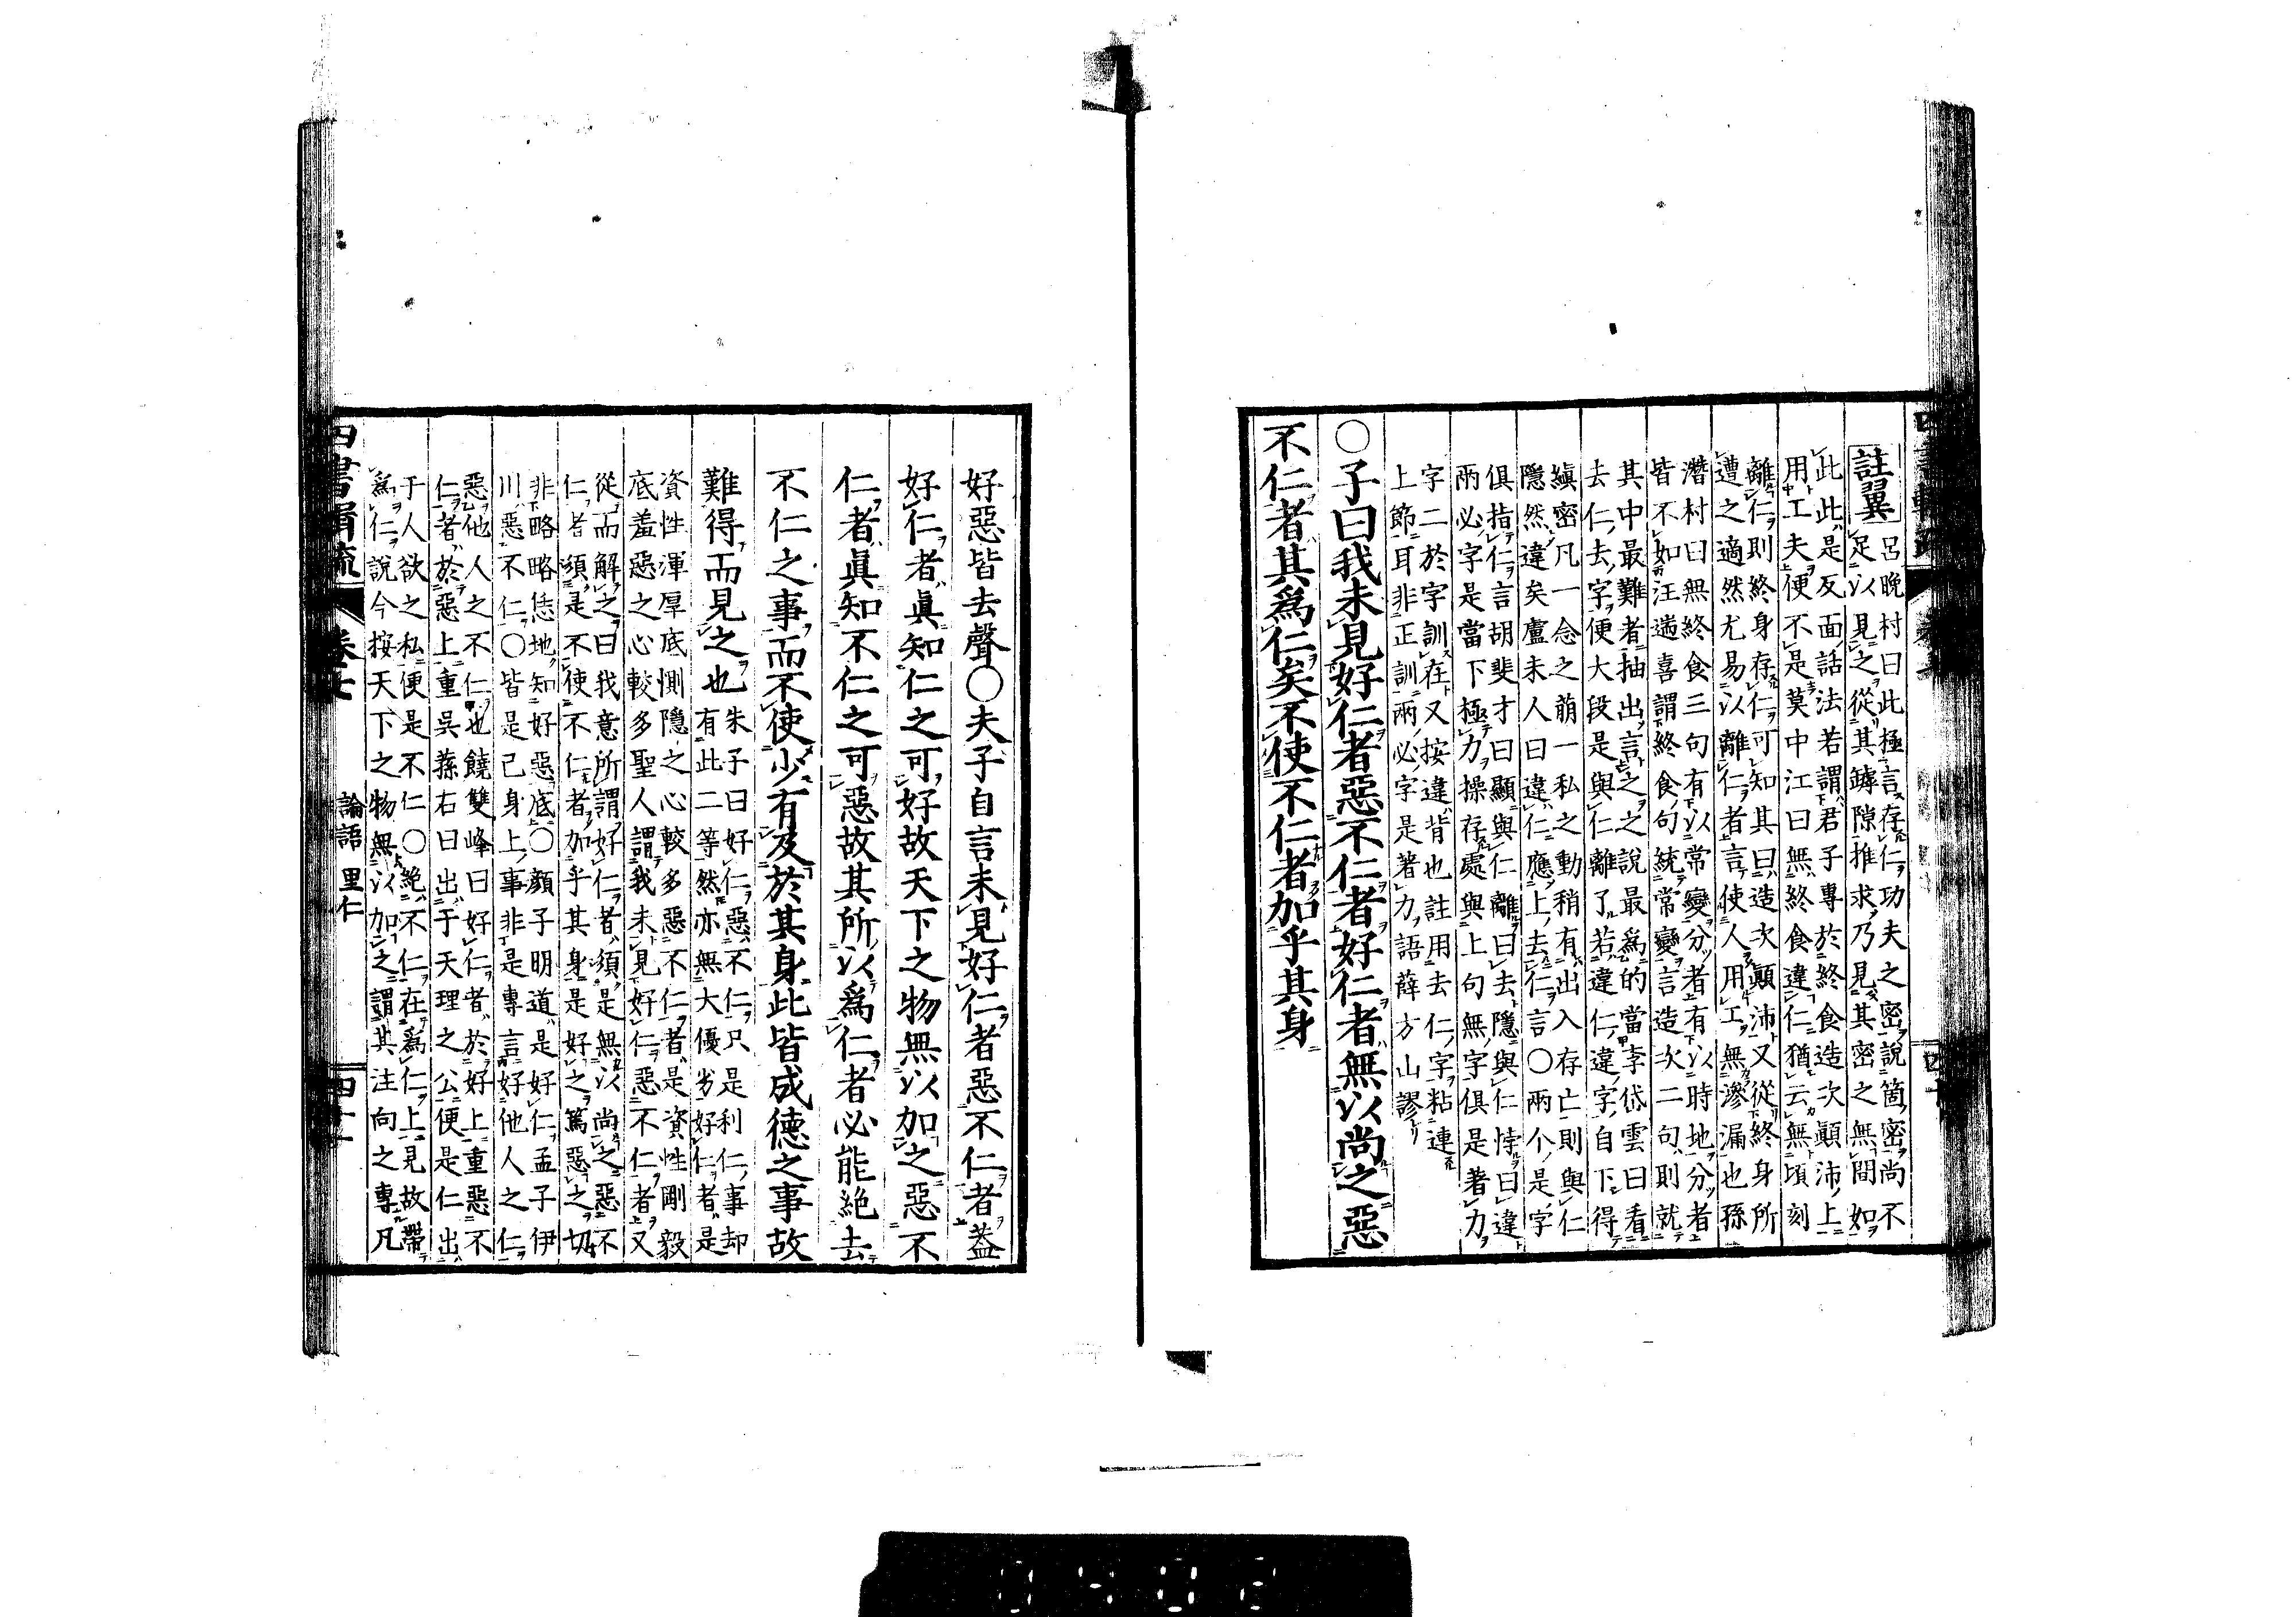 註翼
呂晩村曰此極言存仁功夫之密說箇密尚不
足以見之從其罅隙推求乃見其密之無間如
此此是反面話法若謂君子專於終食造次顛沛上
用工夫便不是莫中江曰無終食違仁猶云無頃刻
離仁則終身存仁可知其曰造次顛沛又從終身所
遭之適然尤易以離仁者言使人用工無滲漏也孫
潛村曰無終食三句有以常變分者有以時地分者
皆不如汪遄喜謂終食句統常變言造次二句則就
其中最難者抽出言之之說最爲的當李岱雲曰看
去仁去字便大段是與仁離了若違仁違字自下得
縝密凡一念之萠一私之動稍有出入存亡則與仁
隱然違矣盧未人曰違仁應上去仁言○兩个是字
俱指仁言胡斐才曰顯與仁離曰去隱與仁悖曰違
兩必字是當下極力操存處與上句無字俱是著力
字二於字訓在又按違背也註用去仁字粘連
上節耳非正訓兩必字是著力語薛方山謬
○子曰我未見好仁者惡不仁者好仁者無以尚之惡
不仁者其爲仁矣不使不仁者加乎其身
好惡皆去聲○夫子自言未見好仁者惡不仁者蓋
好仁者眞知仁之可好故天下之物無以加之惡不
仁者眞知不仁之可惡故其所以爲仁者必能絶去
不仁之事而不使少有及於其身此皆成德之事故
難得而見之也
朱子曰好仁惡不仁只是利仁事却
有此二等然亦無大優劣好仁者是
資性渾厚底惻隱之心較多惡不仁者是資性剛毅
底羞惡之心較多聖人謂我未見好仁惡不仁者又
從而解之曰我意所謂好仁者須是無以尚之惡不
仁者須是不使不仁者加乎其身是好之篤惡之切
非略略恁地知好惡底○顏子明道是好仁孟子伊
川惡不仁○皆是己身上事非是專言好他人之仁
惡他人之不仁也饒雙峰曰好仁者於好上重惡不
仁者於惡上重吳蓀右曰出于天理之公便是仁出
于人欲之私便是不仁○絶不仁在爲仁上見故帶
爲仁說今按天下之物無以加之謂其注向之專凡
論語 里仁